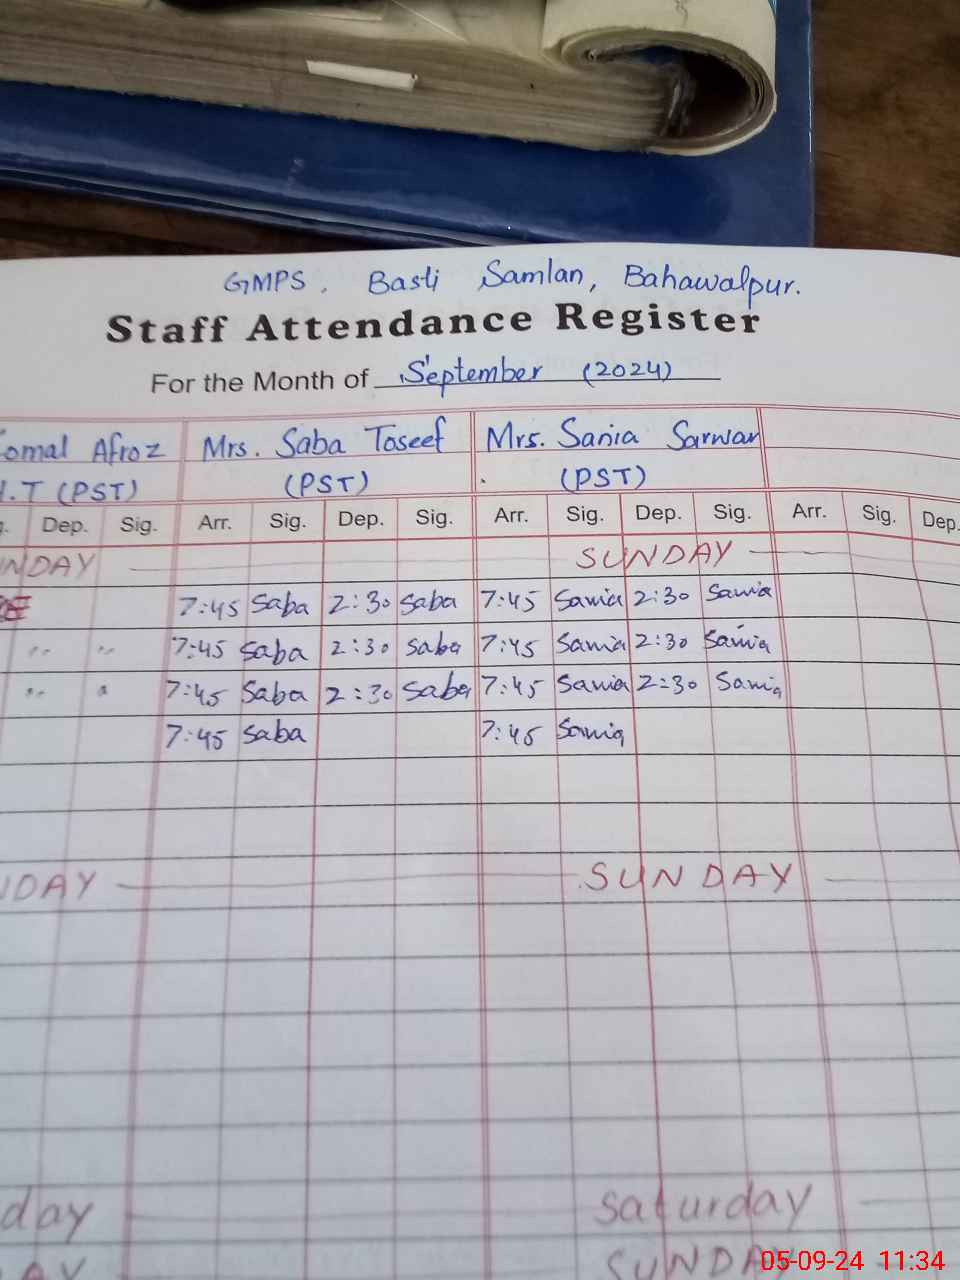 GMPS, Basti Samlan, Bahawalpur.
Staff Attendance Register
For the Month of September (2024)
omal Afroz Mrs. Saba Toseef Mrs. Sania Sarwar
.T (PST) (PST) (PST)
Dep. Sig. Arr. Sig. Dep. Sig. Arr. Sig. Dep. Sig. Arr. Sig. Dep.
NDAY SUNDAY
7:45 Saba 2:30 Saba 7:45 Sania 2:30 Sania
7:45 Saba 2:30 Saba 7:45 Sania 2:30 Sania
7:45 Saba 2:30 Saba 7:45 Sania 2:30 Sania
7:45 Saba 7:45 Sania
DAY SUNDAY
day Saturday
AY SUNDAY
05-09-24 11:34